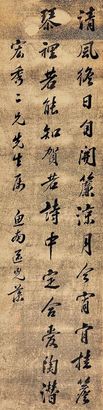 清風終日自開簾涼月今宵肯挂簷
琴裡若能知賀若詩中定合愛陶潛
二兄先生屬